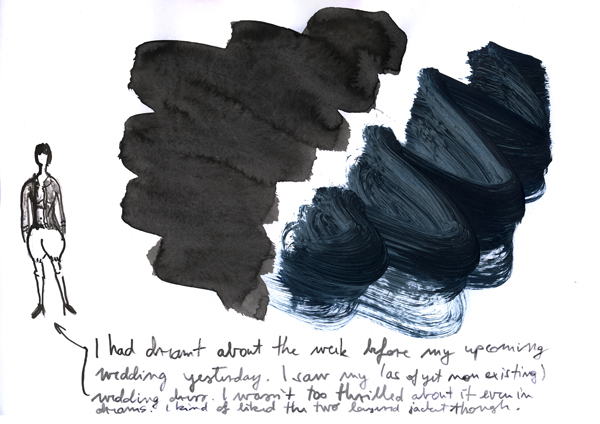 I had dreamt about the week before my upcoming
wedding yesterday. I saw my (as of yet non existing)
wedding dress. I wasn't too thrilled about it even in
dreams. I kind of liked the two layered jacket though.